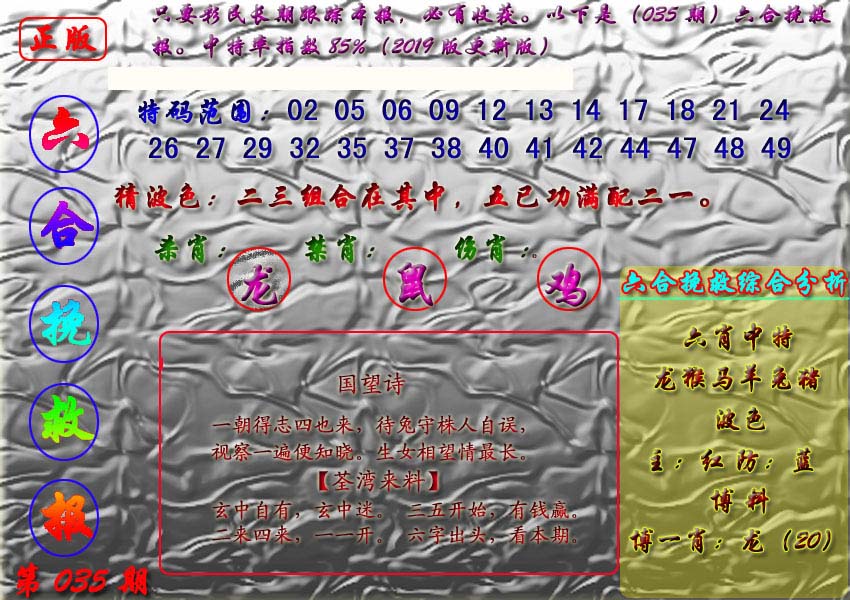 正版
只要彩民长期跟踪本报，必有收获。以下是（035期）六合挽救
报。中特率指数85%（2019版更新版）
六
合
挽
救
报
第035期
特码范围：02 05 06 09 12 13 14 17 18 21 24
26 27 29 32 35 37 38 40 41 42 44 47 48 49
猜波色：二三组合在其中，五已功满配二一。
杀肖：龙 禁肖：鼠 伤肖：鸡
国望诗
一朝得志四也来，待兔守株人自误，
视察一遍便知晓。生女相望情最长。
【荃湾来料】
玄中自有，玄中迷。 三五开始，有钱赢。
二来四来，一一开。 六字出头，看本期。
六合挽救综合分析
六肖中特
龙猴马羊兔猪
波色
主：红防：蓝
博料
博一肖：龙（20）